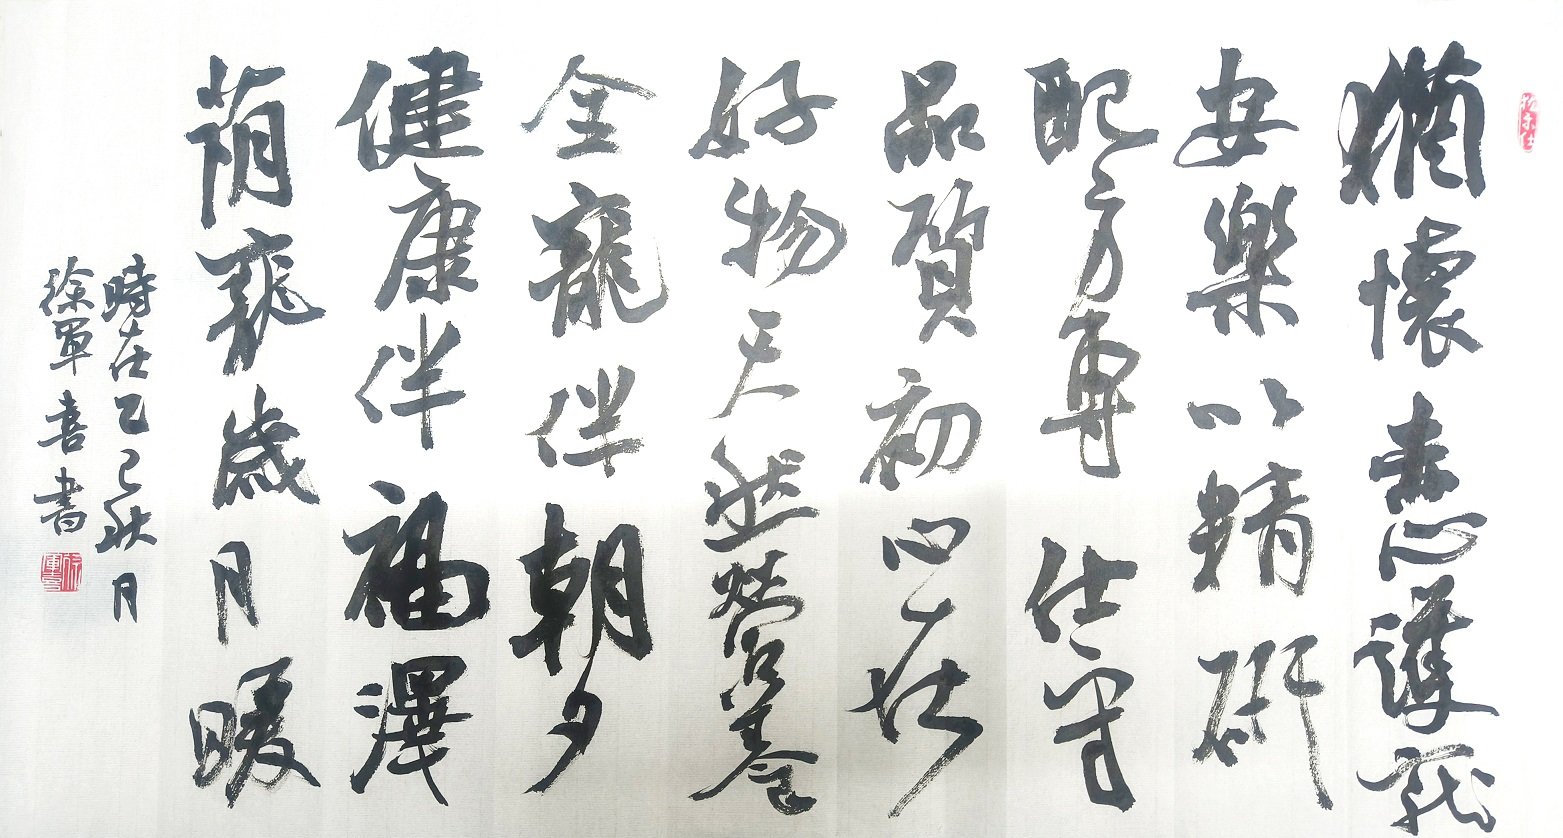 滿懷素心護寵
安樂以精研
配方專仕守
品質初心在
好物天然營養
全寵伴朝夕
健康伴福澤
萌寵歲月暖
時在乙巳秋月
徐軍喜書